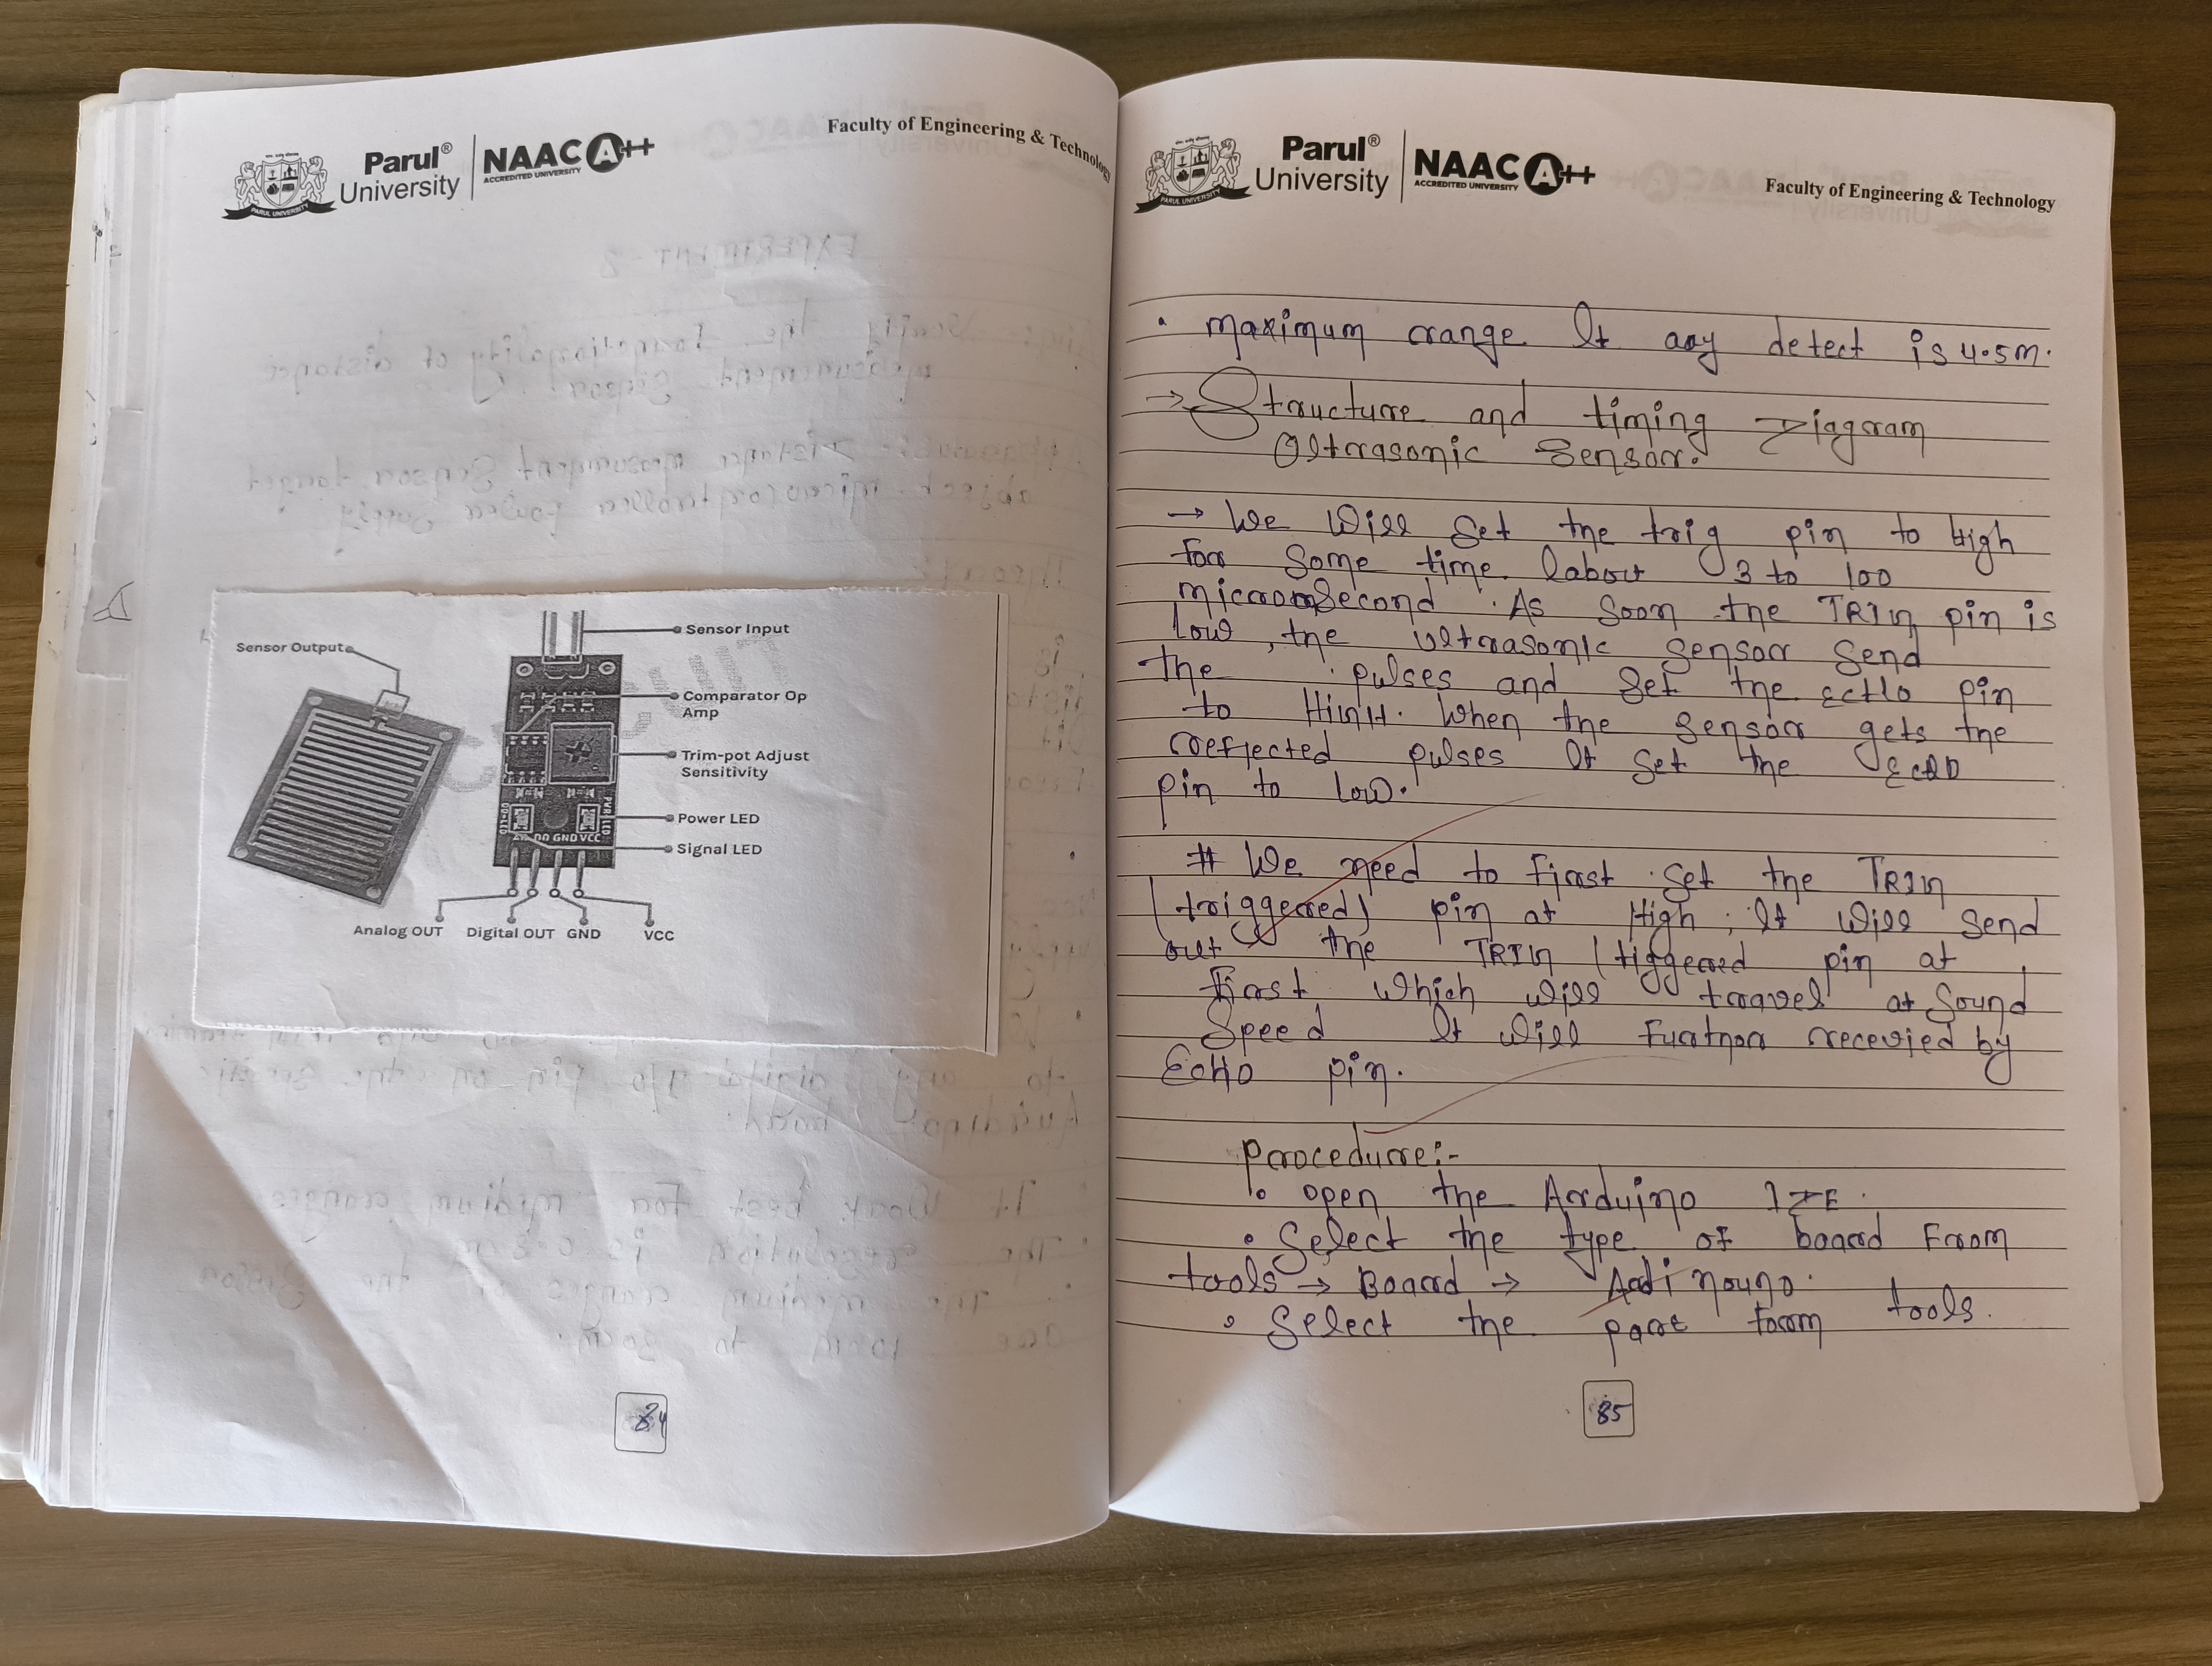 Parul® University
NAAC A++
ACCREDITED UNIVERSITY
PARUL UNIVERSITY
Faculty of Engineering & Technology
Sensor Output
Sensor Input
Comparator Op
Amp
Trim-pot Adjust
Sensitivity
Power LED
Signal LED
DO GND VCC
Analog OUT Digital OUT GND VCC
84
Parul® University
NAAC A++
ACCREDITED UNIVERSITY
PARUL UNIVERSITY
Faculty of Engineering & Technology
• maximum range It any detect is 4.5m.
→ Structure and timing Diagram
Ultrasonic Sensor.
→ We Will Set the trig pin to High
For Some time labout 3 to 100
microSecond. As Soon the TRIG pin is
low, the ultrasonic Sensor Send
the pulses and Set the ECHO pin
to HIGH. When the Sensor gets the
reflected pulses It Set the ECHO
pin to low.
# We need to First Set the TRIG
(triggered) pin at High, It Will Send
out the TRIG (tiggered pin at
First which will travel at Sound
Speed It will Further recevied by
ECHO pin.
procedure:-
• open the Arduino IDE.
• Select the type of board From
tools → Board → Ardinouno.
• Select the port form tools.
85